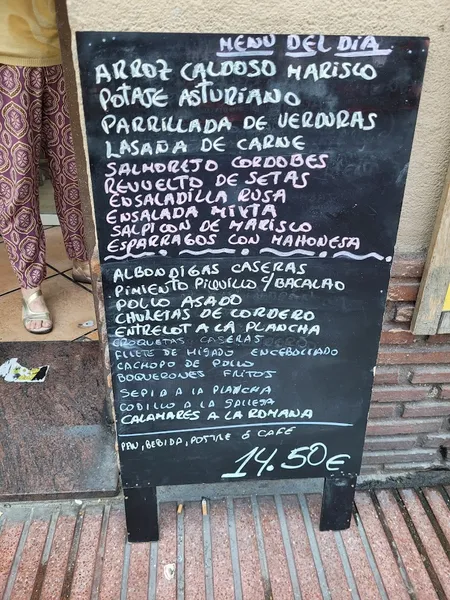 MENU DEL DIA
ARROZ CALDOSO MARISCO
POTAJE ASTURIANO
PARRILLADA DE VERDURAS
LASAÑA DE CARNE
SALMOREJO CORDOBES
REVUELTO DE SETAS
ENSALADILLA RUSA
ENSALADA MIXTA
SALPICON DE MARISCO
ESPARRAGOS CON MAHONESA
ALBONDIGAS CASERAS
PIMIENTO PIQUILLO C/BACALAO
POLLO ASADO
CHULETAS DE CORDERO
ENTRECOT A LA PLANCHA
CROQUETAS CASERAS
FILETE DE HIGADO ENCEBOLLADO
CACHOPO DE POLLO
BOQUERONES FRITOS
SEPIA A LA PLANCHA
CODILLO A LA GALLEGA
CALAMARES A LA ROMANA
PAN, BEBIDA, POSTRE Ó CAFE
14.50€